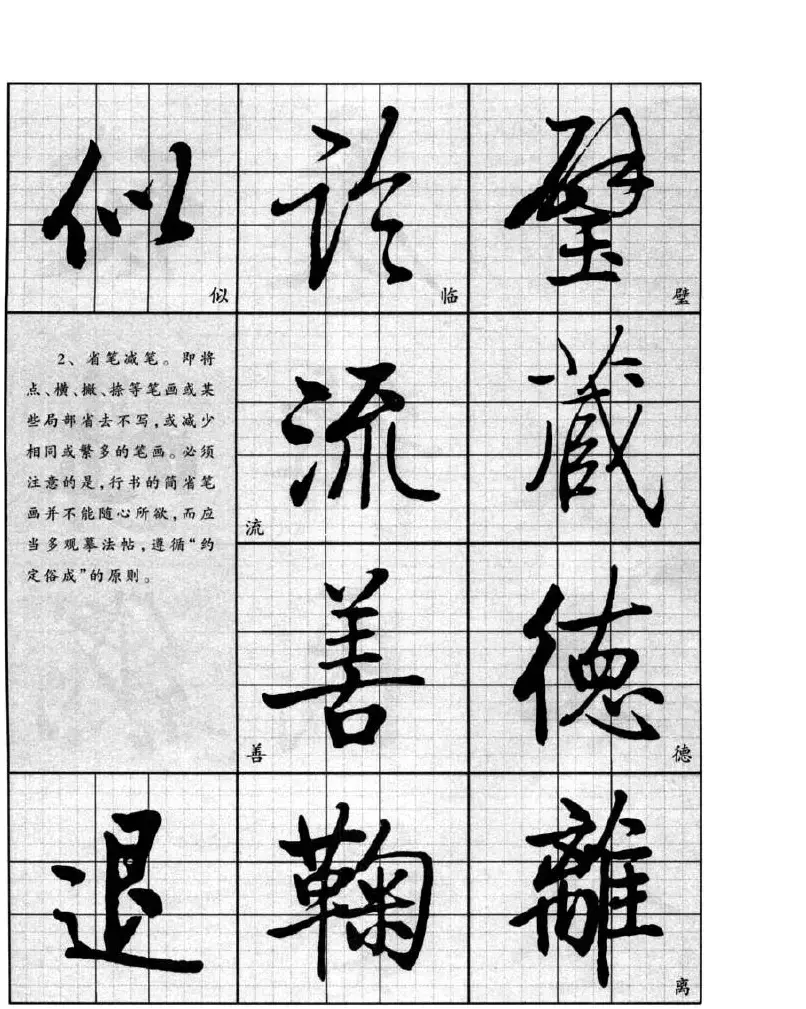 似 临 璧
似 临 璧
2、省笔减笔。即将
点、横、撇、捺等笔画或某
些局部省去不写，或减少
相同或繁多的笔画。必须
注意的是，行书的简省笔
画并不能随心所欲，而应
当多观摹法帖，遵循“约
定俗成”的原则。
流 藏
流
善 德
善 德
退 鞠 離
离